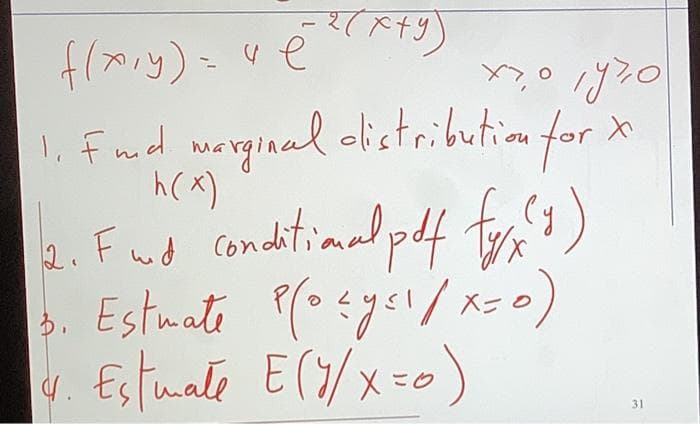 f(x,y) = 4 e^{-2(x+y)} x≥0, y≥0
1. Find marginal distribution for x
h(x)
2. Find conditional pdf f_{y/x}(y)
3. Estmate P(0≤y≤1/x=0)
4. Estmate E(y/x=0)
31